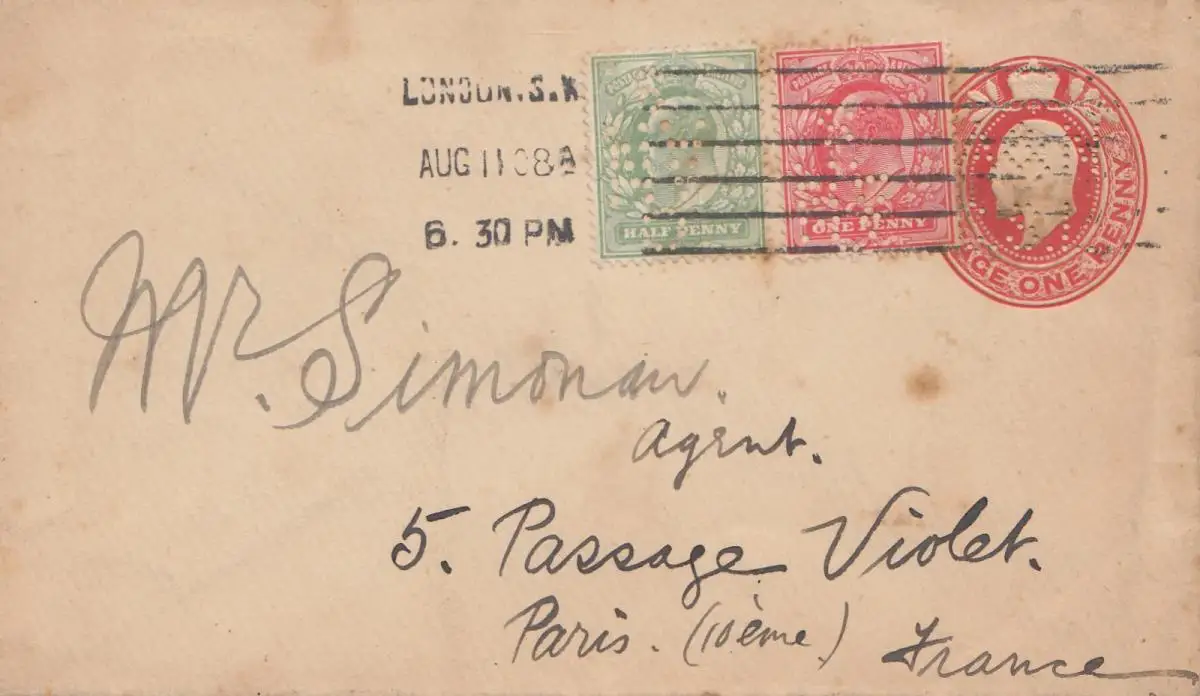 LONDON.S.W
AUG 11 08 8
6. 30 PM
POSTAGE
HALF PENNY
POSTAGE
ONE PENNY
ONE PENNY
Mr. Simonau.
Agent.
5. Passage Violet.
Paris. (10ème) France